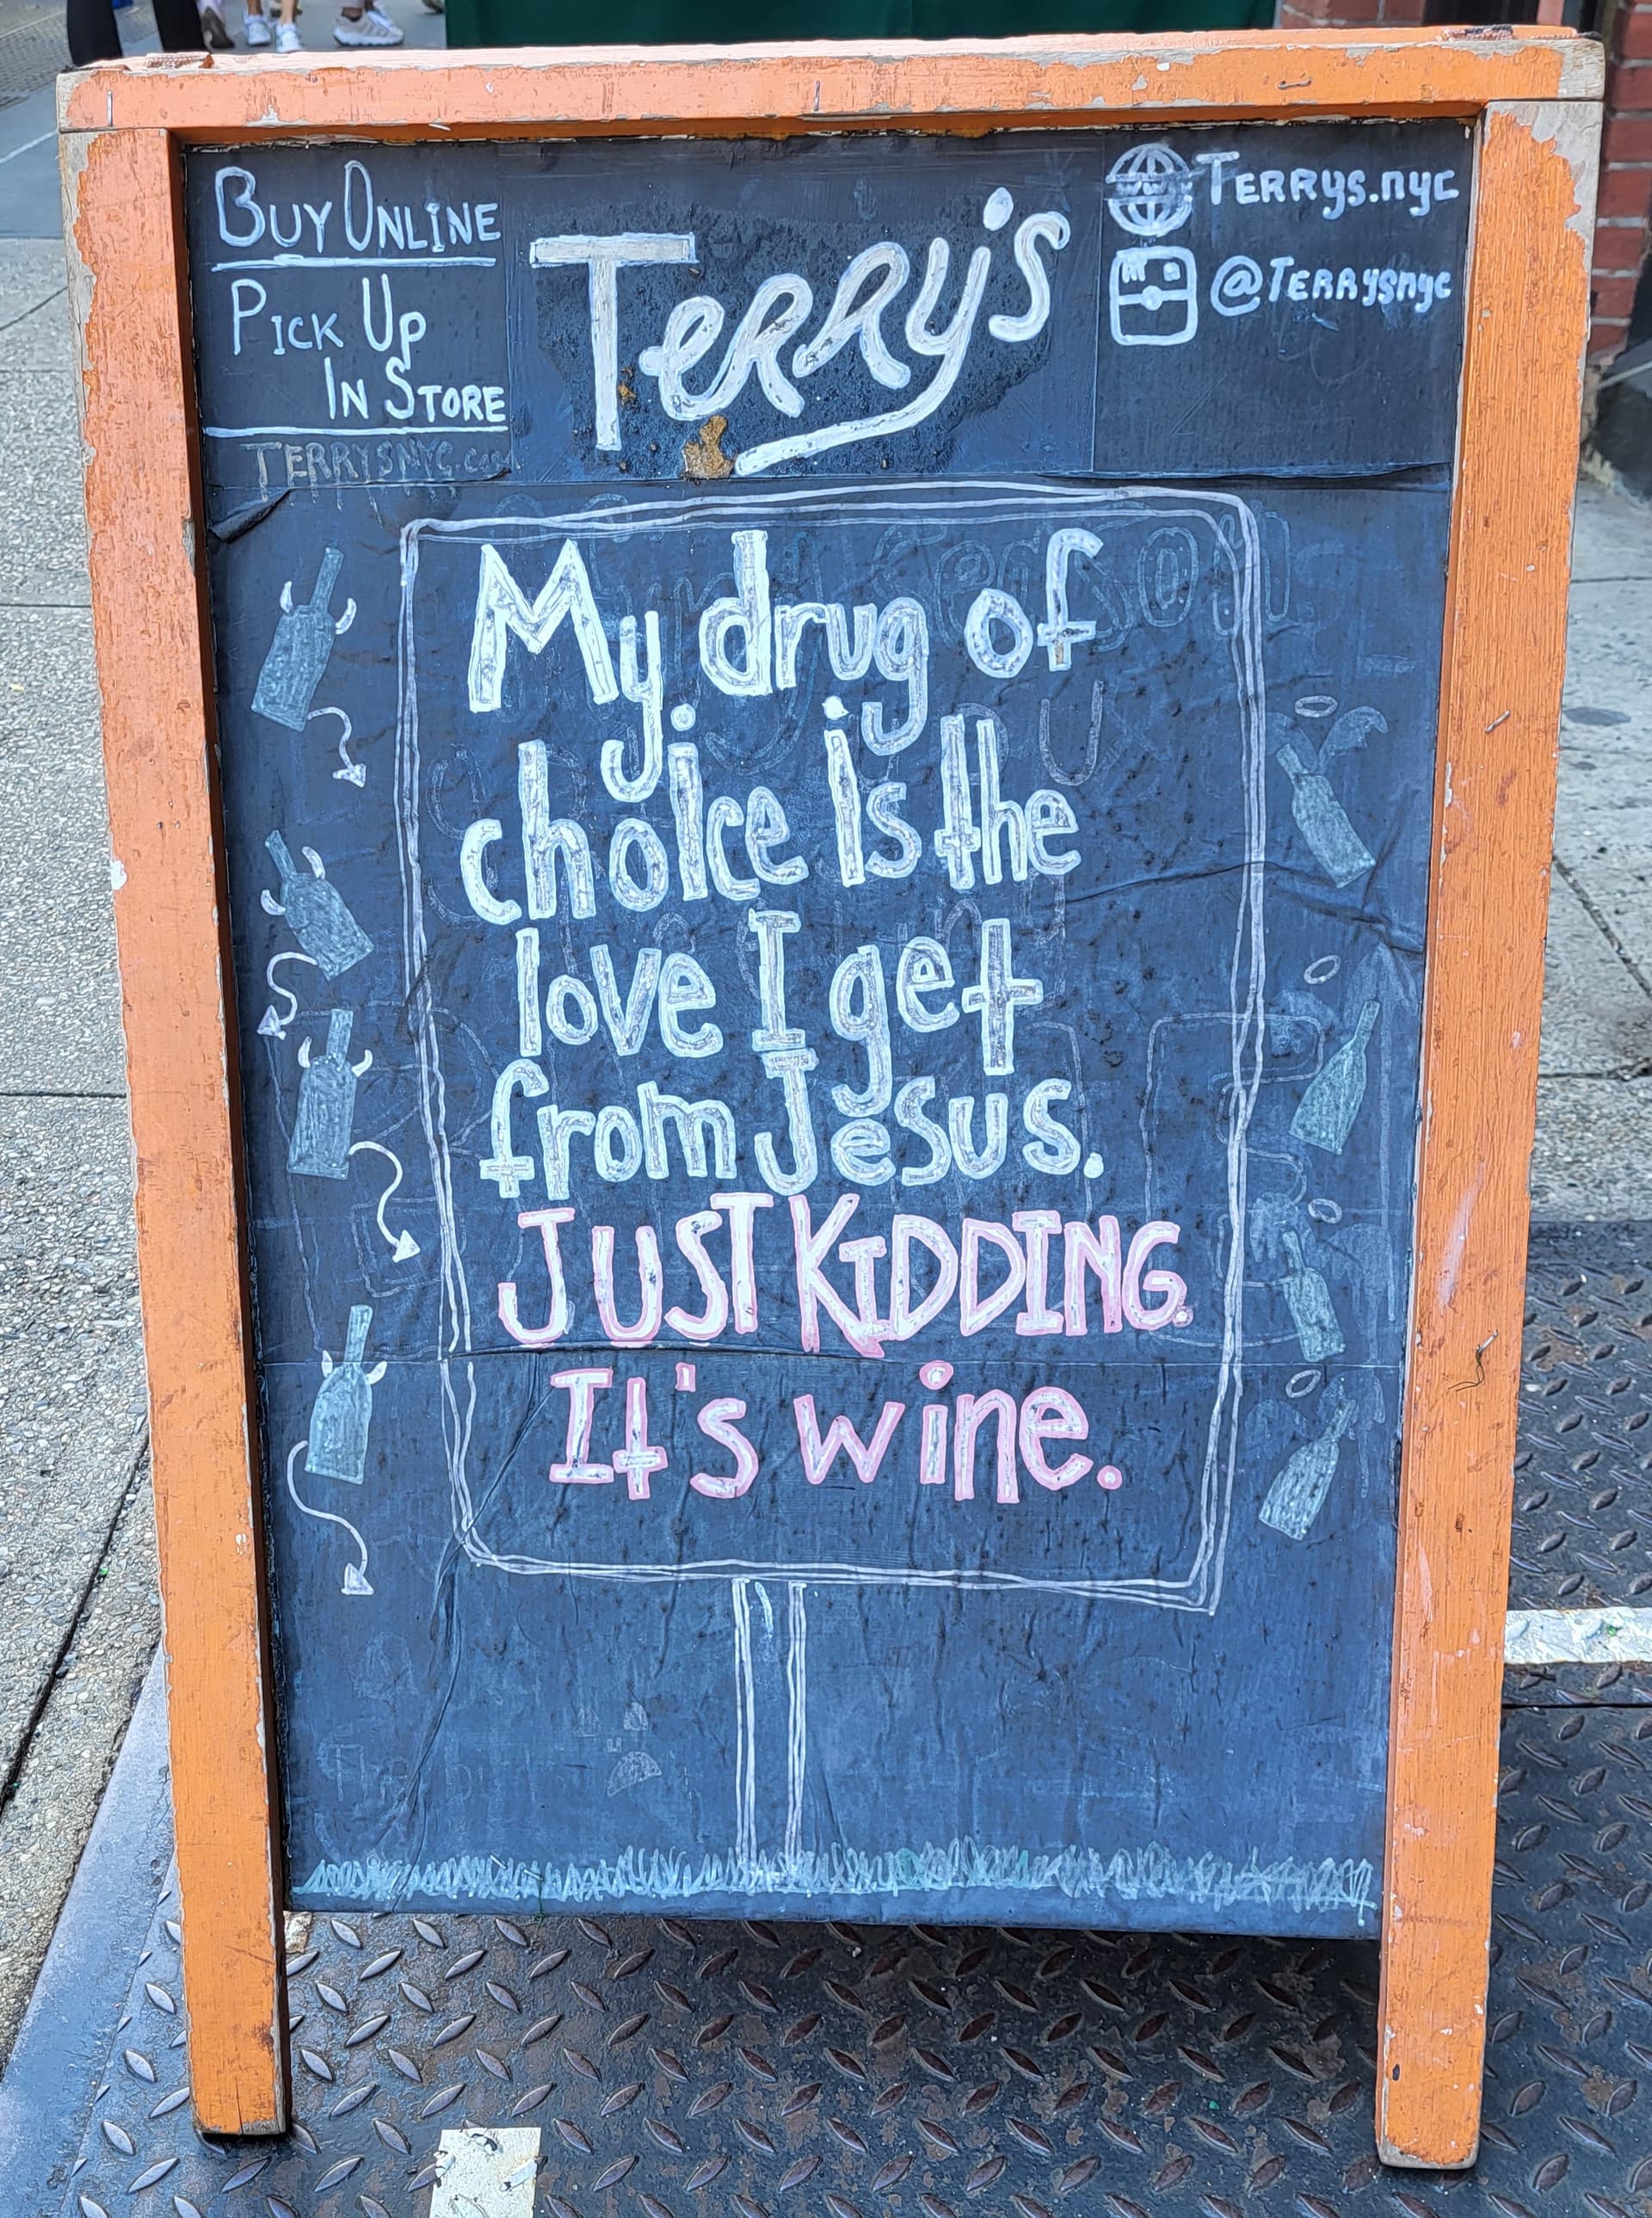 BUY ONLINE
PICK UP
IN STORE
TERRYSNYC.com
TERRY'S
www
TERRYS.nyc
@TERRYSnyc
My drug of
choice is the
love I get
from Jesus.
JUST KIDDING.
It's wine.